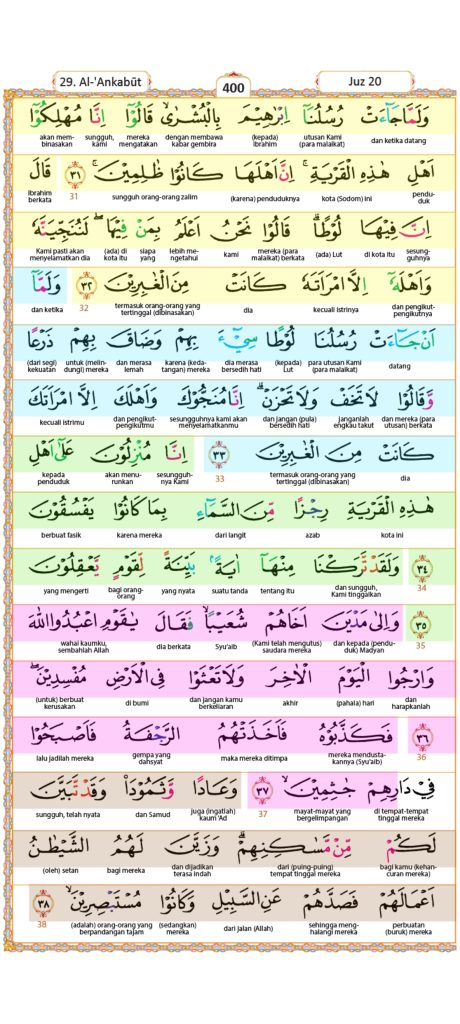 29. Al-'Ankabūt
400
Juz 20
وَلَمَّا جَاۤءَتْ رُسُلُنَآ اِبْرٰهِيْمَ بِالْبُشْرٰىۙ قَالُوْٓا اِنَّا مُهْلِكُوْٓا
dan ketika datang utusan Kami (para malaikat) (kepada) Ibrahim dengan membawa kabar gembira mereka mengatakan sungguh, kami akan mem-binasakan
اَهْلِ هٰذِهِ الْقَرْيَةِ ۚاِنَّ اَهْلَهَا كَانُوْا ظٰلِمِيْنَ ۚ ٣١ قَالَ
pendu-duk kota (Sodom) ini (karena) penduduknya sungguh orang-orang zalim 31 Ibrahim berkata
اِنَّ فِيْهَا لُوْطًا ۗقَالُوْا نَحْنُ اَعْلَمُ بِمَنْ فِيْهَا ۖ لَنُنَجِّيَنَّهٗ
sesung-guhnya di kota itu (ada) Lut mereka (para malaikat) berkata kami lebih me-ngetahui siapa yang (ada) di kota itu Kami pasti akan menyelamatkan dia
وَاَهْلَهٗٓ اِلَّا امْرَاَتَهٗ كَانَتْ مِنَ الْغٰبِرِيْنَ ٣٢ وَلَمَّآ
dan pengikut-pengikutnya kecuali istrinya dia termasuk orang-orang yang tertinggal (dibinasakan) 32 dan ketika
اَنْ جَاۤءَتْ رُسُلُنَا لُوْطًا سِيْۤءَ بِهِمْ وَضَاقَ بِهِمْ ذَرْعًا
datang para utusan Kami (para malaikat) (kepada) Lut dia merasa bersedih hati karena (keda-tangan) mereka dan merasa lemah untuk (melin-dungi) mereka (dari segi) kekuatan
وَّقَالُوْا لَا تَخَفْ وَلَا تَحْزَنْ ۗاِنَّا مُنَجُّوْكَ وَاَهْلَكَ اِلَّا امْرَاَتَكَ
dan mereka (para utusan) berkata janganlah engkau takut dan jangan (pula) bersedih hati sesungguhnya kami akan menyelamatkanmu dan pengikut-pengikutmu kecuali istrimu
كَانَتْ مِنَ الْغٰبِرِيْنَ ٣٣ اِنَّا مُنْزِلُوْنَ عَلٰٓى اَهْلِ
dia termasuk orang-orang yang tertinggal (dibinasakan) 33 sesungguh-nya Kami akan menu-runkan kepada penduduk
هٰذِهِ الْقَرْيَةِ رِجْزًا مِّنَ السَّمَاۤءِ بِمَا كَانُوْا يَفْسُقُوْنَ
kota ini azab dari langit karena mereka berbuat fasik
٣٤ وَلَقَدْ تَّرَكْنَا مِنْهَآ اٰيَةً ۢ بَيِّنَةً لِّقَوْمٍ يَّعْقِلُوْنَ
34 dan sungguh, Kami tinggalkan tentang itu suatu tanda yang nyata bagi orang-orang yang mengerti
٣٥ وَاِلٰى مَدْيَنَ اَخَاهُمْ شُعَيْبًاۙ فَقَالَ يٰقَوْمِ اعْبُدُوا اللّٰهَ
35 dan kepada (pendu-duk) Madyan (Kami telah mengutus) saudara mereka Syu'aib dia berkata wahai kaumku, sembahlah Allah
وَارْجُوا الْيَوْمَ الْاٰخِرَ وَلَا تَعْثَوْا فِى الْاَرْضِ مُفْسِدِيْنَ ۖ
dan harapkanlah (pahala) hari akhir dan jangan kamu berkeliaran di bumi (untuk) berbuat kerusakan
٣٦ فَكَذَّبُوْهُ فَاَخَذَتْهُمُ الرَّجْفَةُ فَاَصْبَحُوْا
36 mereka mendusta-kannya (Syu'aib) maka mereka ditimpa gempa yang dahsyat lalu jadilah mereka
فِيْ دَارِهِمْ جٰثِمِيْنَ ۙ ٣٧ وَعَادًا وَّثَمُوْدَا۟ وَقَدْ تَّبَيَّنَ
di tempat-tempat tinggal mereka mayat-mayat yang bergelimpangan 37 juga (ingatlah) kaum 'Ad dan Samud sungguh, telah nyata
لَكُمْ مِّنْ مَّسٰكِنِهِمْ ۗوَزَيَّنَ لَهُمُ الشَّيْطٰنُ
bagi kamu (kehan-curan mereka) dari (puing-puing) tempat tinggal mereka dan dijadikan terasa indah bagi mereka (oleh) setan
اَعْمَالَهُمْ فَصَدَّهُمْ عَنِ السَّبِيْلِ وَكَانُوْا مُسْتَبْصِرِيْنَ ۙ ٣٨
perbuatan (buruk) mereka sehingga meng-halangi mereka dari jalan (Allah) (sedangkan) mereka (adalah) orang-orang yang berpandangan tajam 38